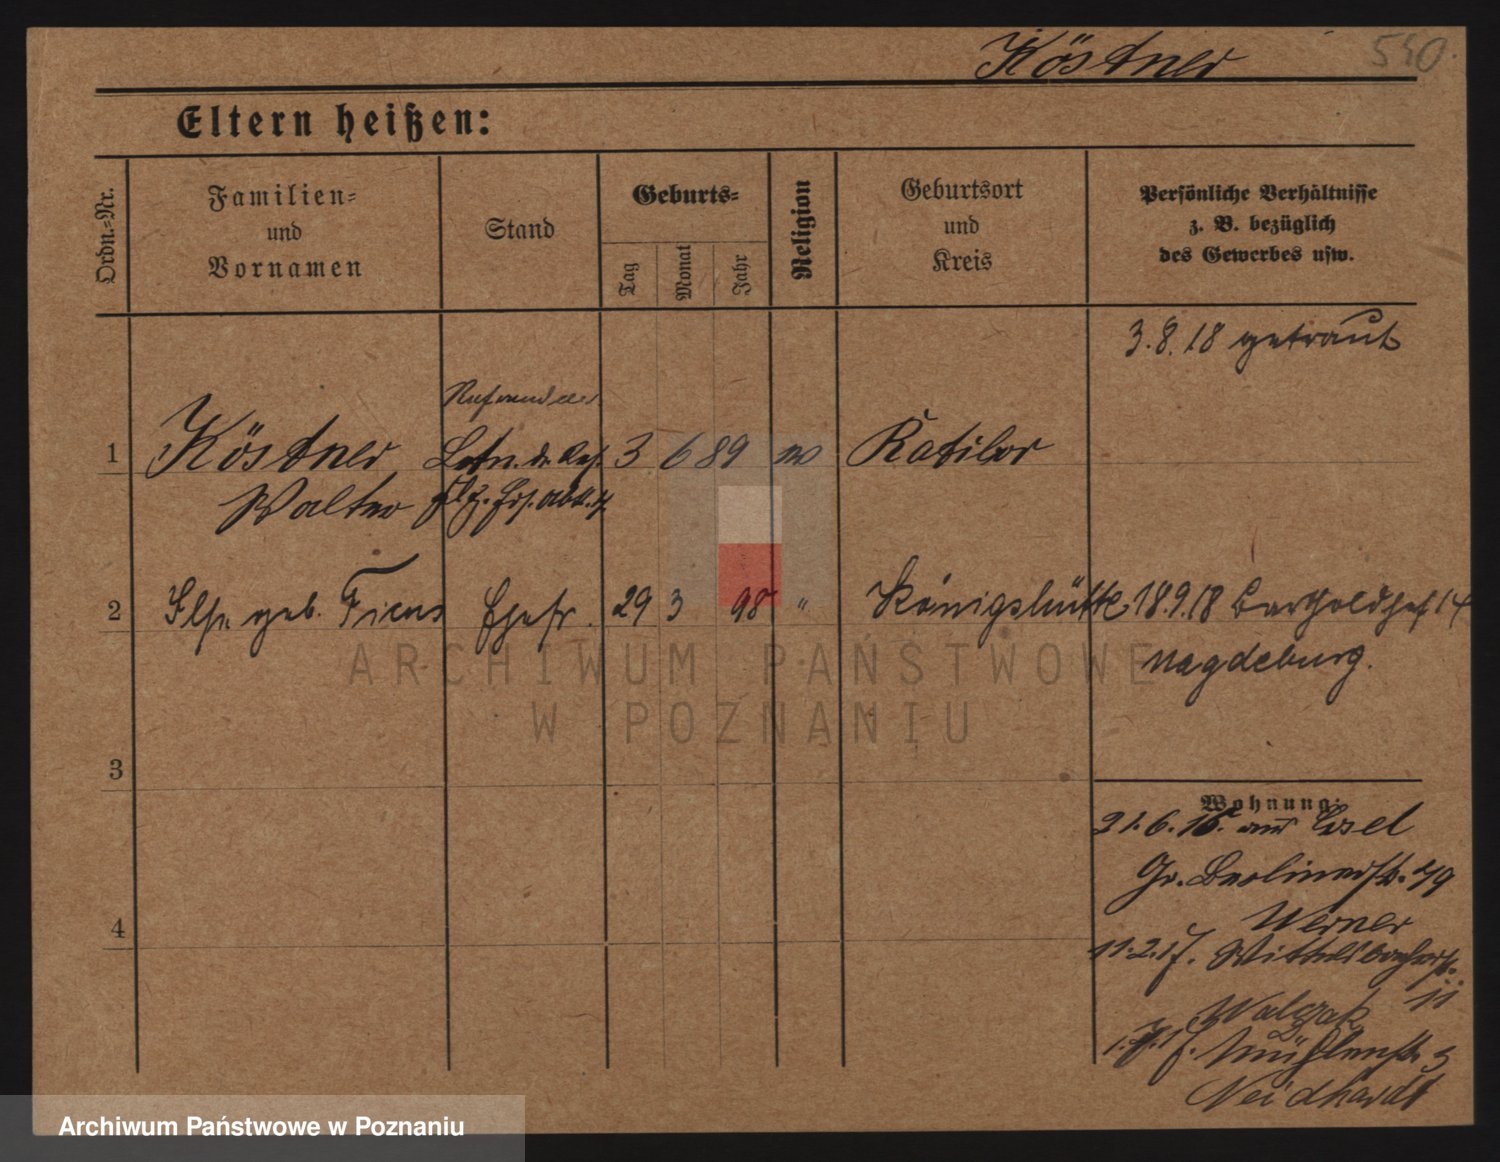 Köstner 540.
Eltern heißen:
Ordn.=Nr.
Familien=
und
Vornamen
Stand
Geburts=
Tag
Monat
Jahr
Religion
Geburtsort
und
Kreis
Persönliche Verhältnisse
z. B. bezüglich
des Gewerbes usw.
3.8.18 getraut
Referendar
1 Köstner, Ltn. d. Res. 3 6 89 Ratibor
Walter
2 Ilse geb. Ficus Ehefr. 29 3 98 " Königshütte 18.9.18
Magdeburg.
ARCHIWUM PAŃSTWOWE
W POZNANIU
3
Wohnung:
21.6.16. aus
Gr. Berlinerstr. 79
Werner
4
11.2.17. Wittelsbacherstr.
11
Walczak
1.7.17. Mühlenstr. 3
Neidhardt
Archiwum Państwowe w Poznaniu